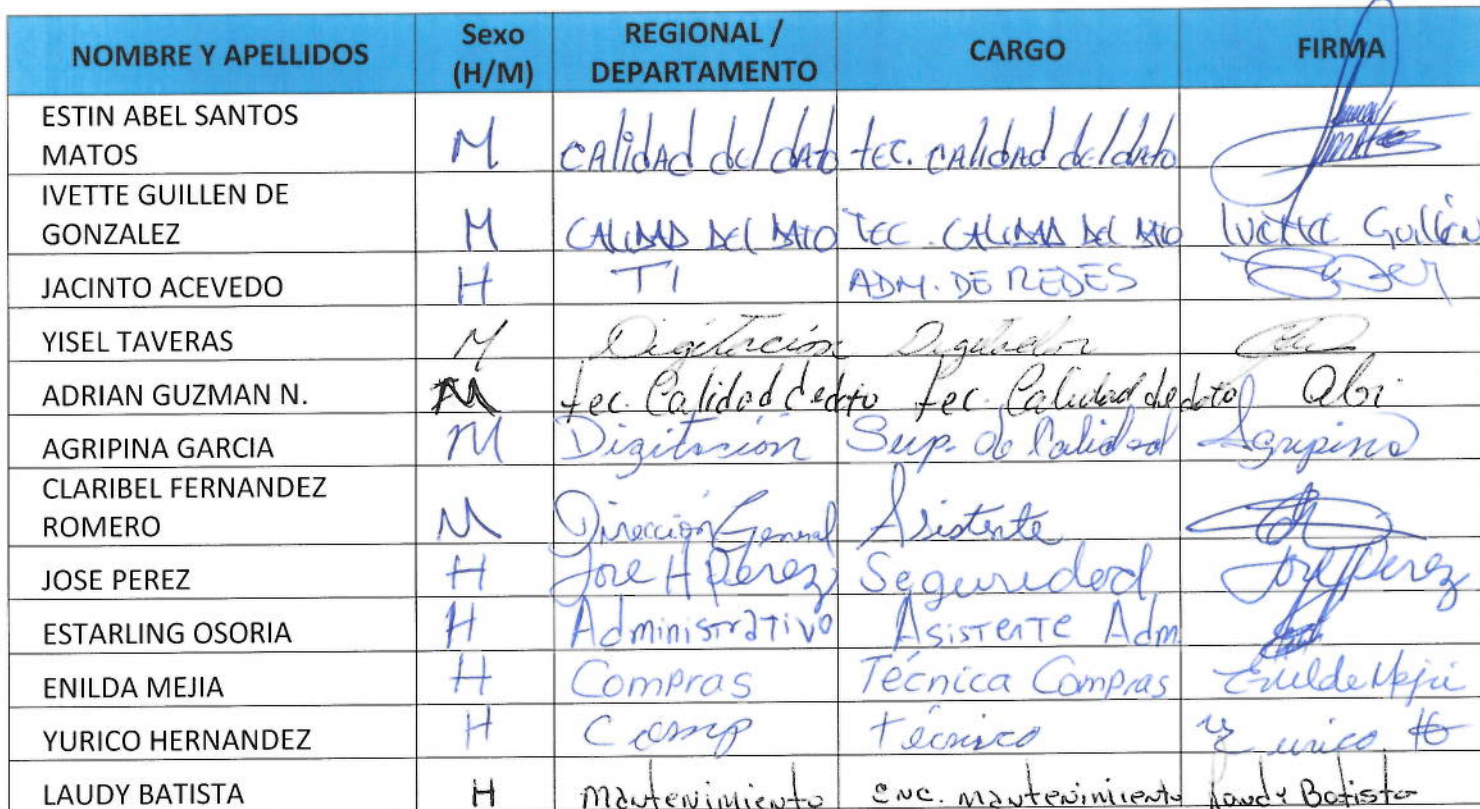 NOMBRE Y APELLIDOS Sexo (H/M) REGIONAL / DEPARTAMENTO CARGO FIRMA
ESTIN ABEL SANTOS MATOS M CAlidAd del dAto tec. CAlidAd del dAto
IVETTE GUILLEN DE GONZALEZ M CALIDAD DEL DATO TEC. CALIDAD DEL DATO Ivette Guillén
JACINTO ACEVEDO H TI ADM. DE REDES
YISEL TAVERAS M Digitación Digitador
ADRIAN GUZMAN N. M tec. Calidad de dato tec. Calidad de dato
AGRIPINA GARCIA M Digitasion Sup. de Calidad Agripina
CLARIBEL FERNANDEZ ROMERO M Dirección General Asistente
JOSE PEREZ H Jose H Perez Seguridad Jose Perez
ESTARLING OSORIA H Administrativo Asistente Adm
ENILDA MEJIA H Compras Técnica Compras Enilda Mejia
YURICO HERNANDEZ H Comp técnico Yurico H
LAUDY BATISTA H mantenimiento enc. mantenimiento Laudy Batista